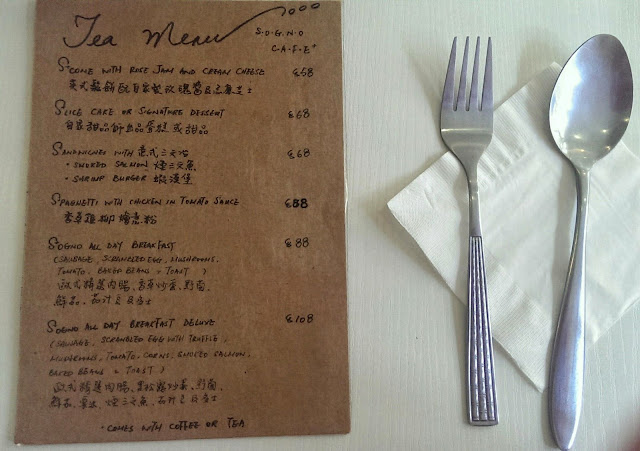 Tea Menu
S.O.G.N.O
C.A.F.E
Scone with Rose Jam and Cream Cheese 58
英式鬆餅配自家製玫瑰醬及忌廉芝士
Slice Cake or Signature Dessert 68
自家甜品師出品蛋糕 或 甜品
Sandwiches with 意式三文治 68
• Smoked Salmon 煙三文魚
• Shrimp Burger 蝦漢堡
Spaghetti with Chicken in Tomato Sauce 88
香草雞柳燴意粉
Sogno All Day Breakfast 88
(Sausage, Scrambled Egg, Mushrooms,
Tomato, Baked Beans & Toast)
歐式精選肉腸、香草炒蛋、野菌、
鮮茄、茄汁豆及吐士
Sogno All Day Breakfast Deluxe 108
(Sausage, Scrambled Egg with Truffle,
Mushrooms, Tomato, Corns, Smoked Salmon,
Baked Beans & Toast)
歐式精選肉腸、黑松露炒蛋、野菌、
鮮茄、粟米、煙三文魚、茄汁豆及吐士
• Comes with Coffee or Tea